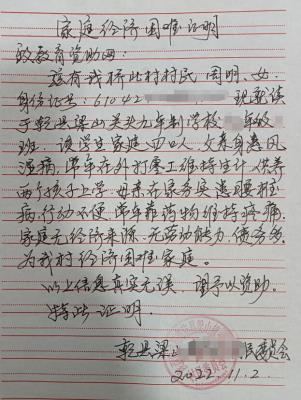 家庭经济困难证明
致教育资助网:
兹有我桥北村村民 周明,女
身份证号:61042 现就读
于乾县梁山关头九年制学校 年级
班。该学生家庭四口人,父亲身患风
湿病,常年在外打零工维持生计,供养
两个孩子上学,母亲在家务实患腰椎
病,行动不便,常年靠药物维持疼痛,
家庭无经济来源,无劳动能力,债务多,
为我村经济困难家庭。
以上信息真实无误,望予以资助。
特此证明。
乾县梁山 民委员会
2022.11.2